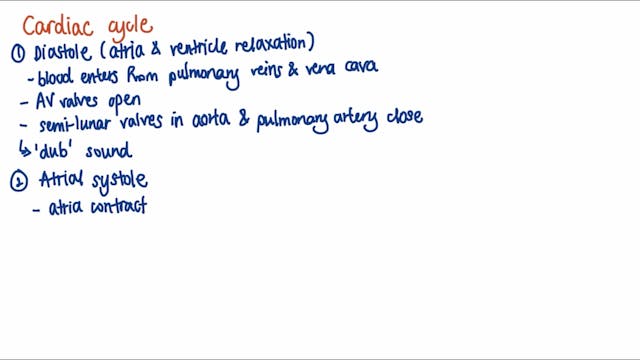 Cardiac cycle
① Diastole (atria & ventricle relaxation)
- blood enters from pulmonary veins & vena cava
- AV valves open
- semi-lunar valves in aorta & pulmonary artery close
↳ 'dub' sound
② Atrial systole
- atria contract